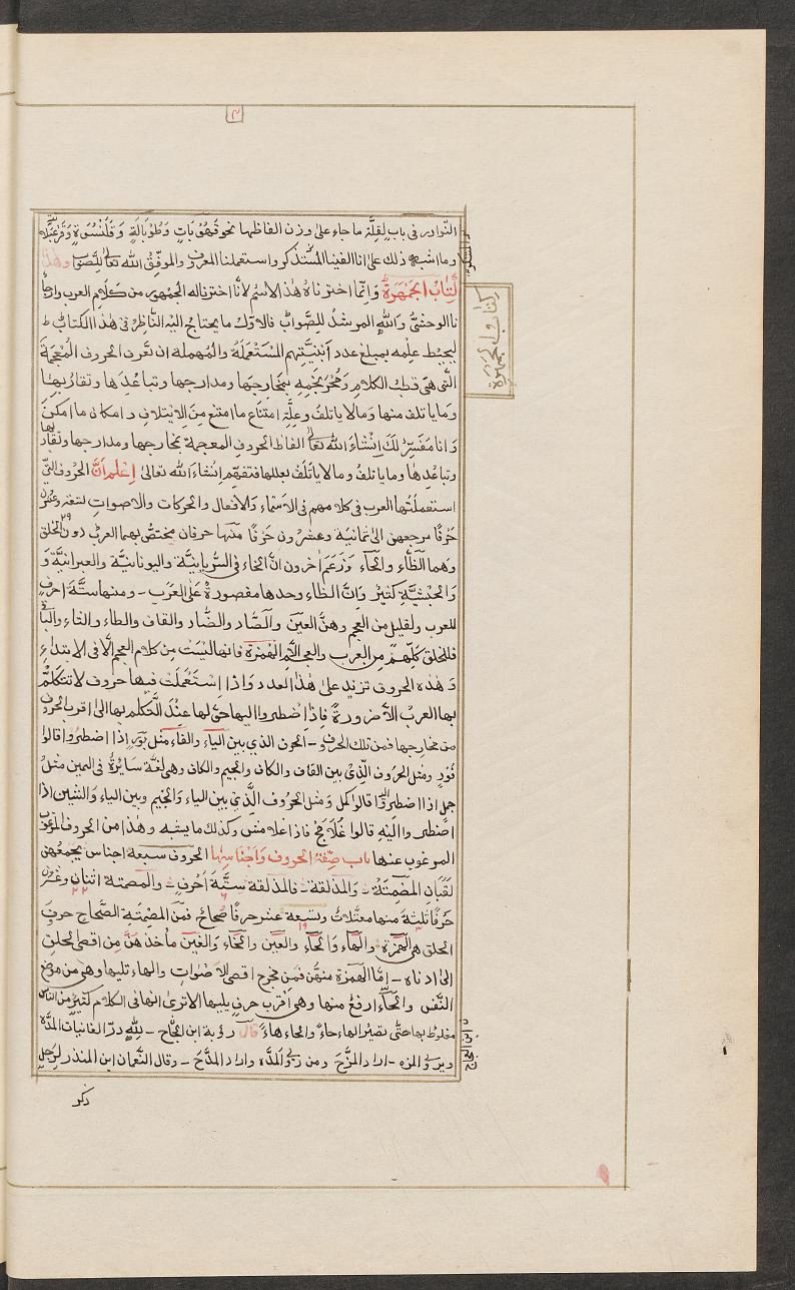 ٣
النوادر فى باب لقلة ما جاء على وزن الفاظها نحو قهوبات وطوبالة وقلنسوة وقرعبلانة
وما اشبه ذلك على انا الغينا المستنكر واستعملنا المعروف والموفق الله تعالى للصواب وهذا
كتاب الجمهرة وانما اخترناه هٰذا الاسم لانا اخترنا له الجمهور من كلام العرب وارجأ
نا الوحشى والله المرشد للصواب فالاول ما يحتاج اليه الناظر فى هٰذا الكتاب ط
ليحيط علمه بمبلغ عدد ابنيتهم المستعملة والمهملة ان تعرف الحروف المعجمة
التى هى قطب الكلام ومحرنجمه بمخارجها ومدارجها وتباعدها وتقاربها
وما ياتلف منها وما لا ياتلف وعلة امتناع ما امتنع من الايتلاف وامكان ما امكن
وانا مفسر لك انشاء الله تعالى الفاظ الحروف المعجمة بمخارجها ومدارجها وتقاربها
وتباعدها وما ياتلف وما لا ياتلف بعللها فتفهم انشاء الله تعالى اعلم ان الحروف التى
استعملتها العرب فى كلامهم فى الاسماء والافعال والحركات والاصوات تسعة وعشرون
٢٩
حرفا مرجعهن الى ثمانية وعشرون حرفا منها حرفان مختص بهما العرب دون الخلق
وهما الظاء والحاء وزعم اخرون ان الحاء فى السريانية واليونانية والعبرانية و
والحبشية كثير وان الظاء وحدها مقصورة على العرب - ومنها ستة احرف
للعرب ولقليل من العجم وهن العين والصاد والضاد والقاف والطاء والثاء والباقى
فللخلق كلهم من العرب والعجم الا الهمزة فانها ليست من كلام العجم الا فى الابتداء
وهذه الحروف تزيد على هٰذا العدد واذا استعملت فيها حروف لا تتكلم
بها العرب الا ضرورة فاذا اضطروا اليها حولها عند التكلم بها الى اقرب الحروف
من مخارجها فمن تلك الحروف - الحرف الذي بين الباء والفاء مثل بور اذا اضطروا قالوا
فور ومثل الحروف الذى بين القاف والكاف والجيم والكاف وهى لغة سايرة فى اليمن مثل
جمل اذا اضطروا قالوا كمل ومثل الحروف الذى بين الياء والجيم وبين الياء والشين اذا
اضطر واليه قالوا غلامج فاذ اغلامش وكذلك ما يشبه وهٰذا من الحروف المرغوب
المرغوب عنها باب صفة الحروف واجناسها الحروف سبعة اجناس يجمعهن
لقبان المصمتة والمذلقة فالمذلقة ستة احرف والمصمتة اثنان وعشرون
٦
٢٢
حرفا ثلثة منها معتلات وتسعة عشر حرفا صحاح فمن المصمتة الصحاح حروف
١٩
الحلق هى الهمزة والهاء والحاء والعين والخاء والغين مأخذهن من اقصى الحلق
الى ادناه - اما الهمزة منهن فمن مخرج اقصى الاصوات والهاء تليها وهى من موضع
النفس والحاء ارفع منها وهى اقرب حرف يليها الا ترى انها فى الكلام كثير من الناس
مغلوط بها حتى تصير الهاء حاء والحاء هاء قال رؤبة ابن العجاج - لله در الغانيات المده
ويروى المزه - اراد المزح ومن روى المده واراد المدح - وقال النعمان ابن المنذر لرجل
ذكر
كتاب الجمهرة